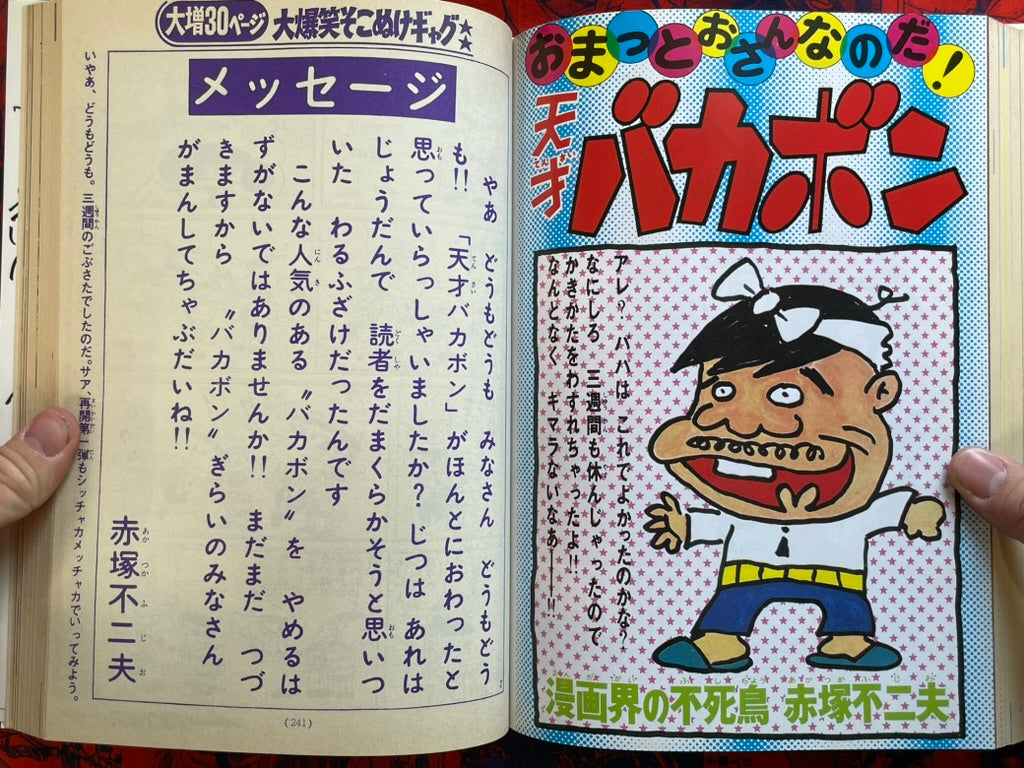 おまっとおさんなのだ!
天才
てんさい
バカボン
アレ?パパは これでよかったのかな?
なにしろ 三週間も休んじゃったので
かきかたをわすれちゃったよ!!
なんとなく キマラないなあ――!!
漫画界の不死鳥 赤塚不二夫
大増30ページ 大爆笑そこぬけギャグ★★
メッセージ
やあ どうもどうも みなさん どうもどう
も!! 「天才バカボン」がほんとにおわったと
思っていらっしゃいましたか? じつは あれは
じょうだんで 読者をだまくらかそうと思いつ
いた わるふざけだったんです
こんな人気のある〝バカボン〟を やめるは
ずがないではありませんか!! まだまだ つづ
きますから 〝バカボン〟ぎらいのみなさん
がまんしてちゃぶだいね!!
赤塚不二夫
あかつかふじお
いやあ、どうもどうも。三週間のごぶさたでしたのだ。サア、再開第一弾もシッチャカメッチャカでいってみよう。
(241)